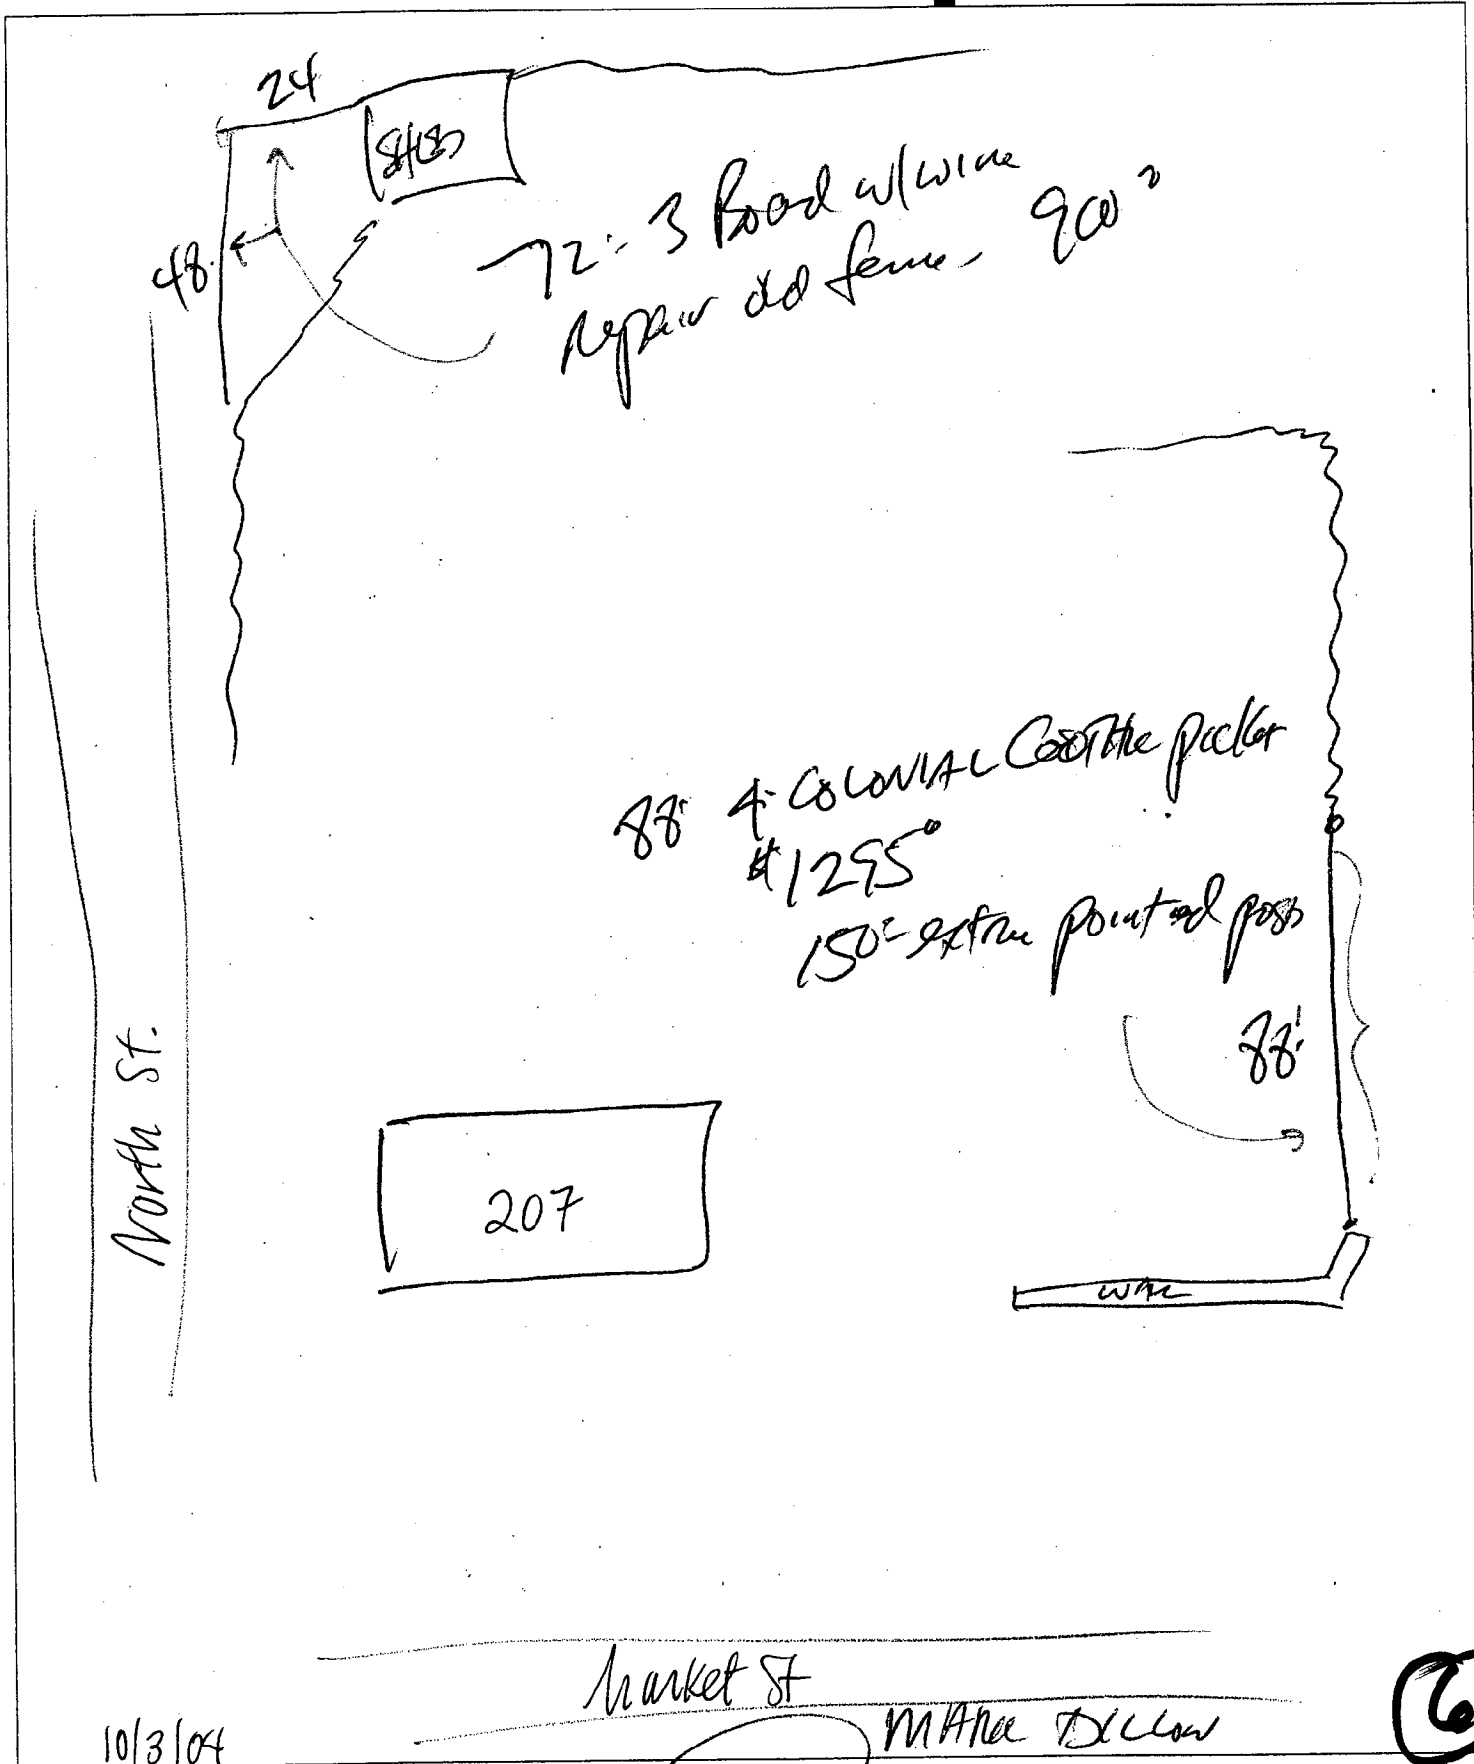 24
SHED
48'
72' 3 Board w/ wire
repair old fence - 900°
88' 4' COLONIAL Gothic picket
$1295°
150° extra pointed posts
88'
North St.
207
WALL
Market St
10/3/04
6